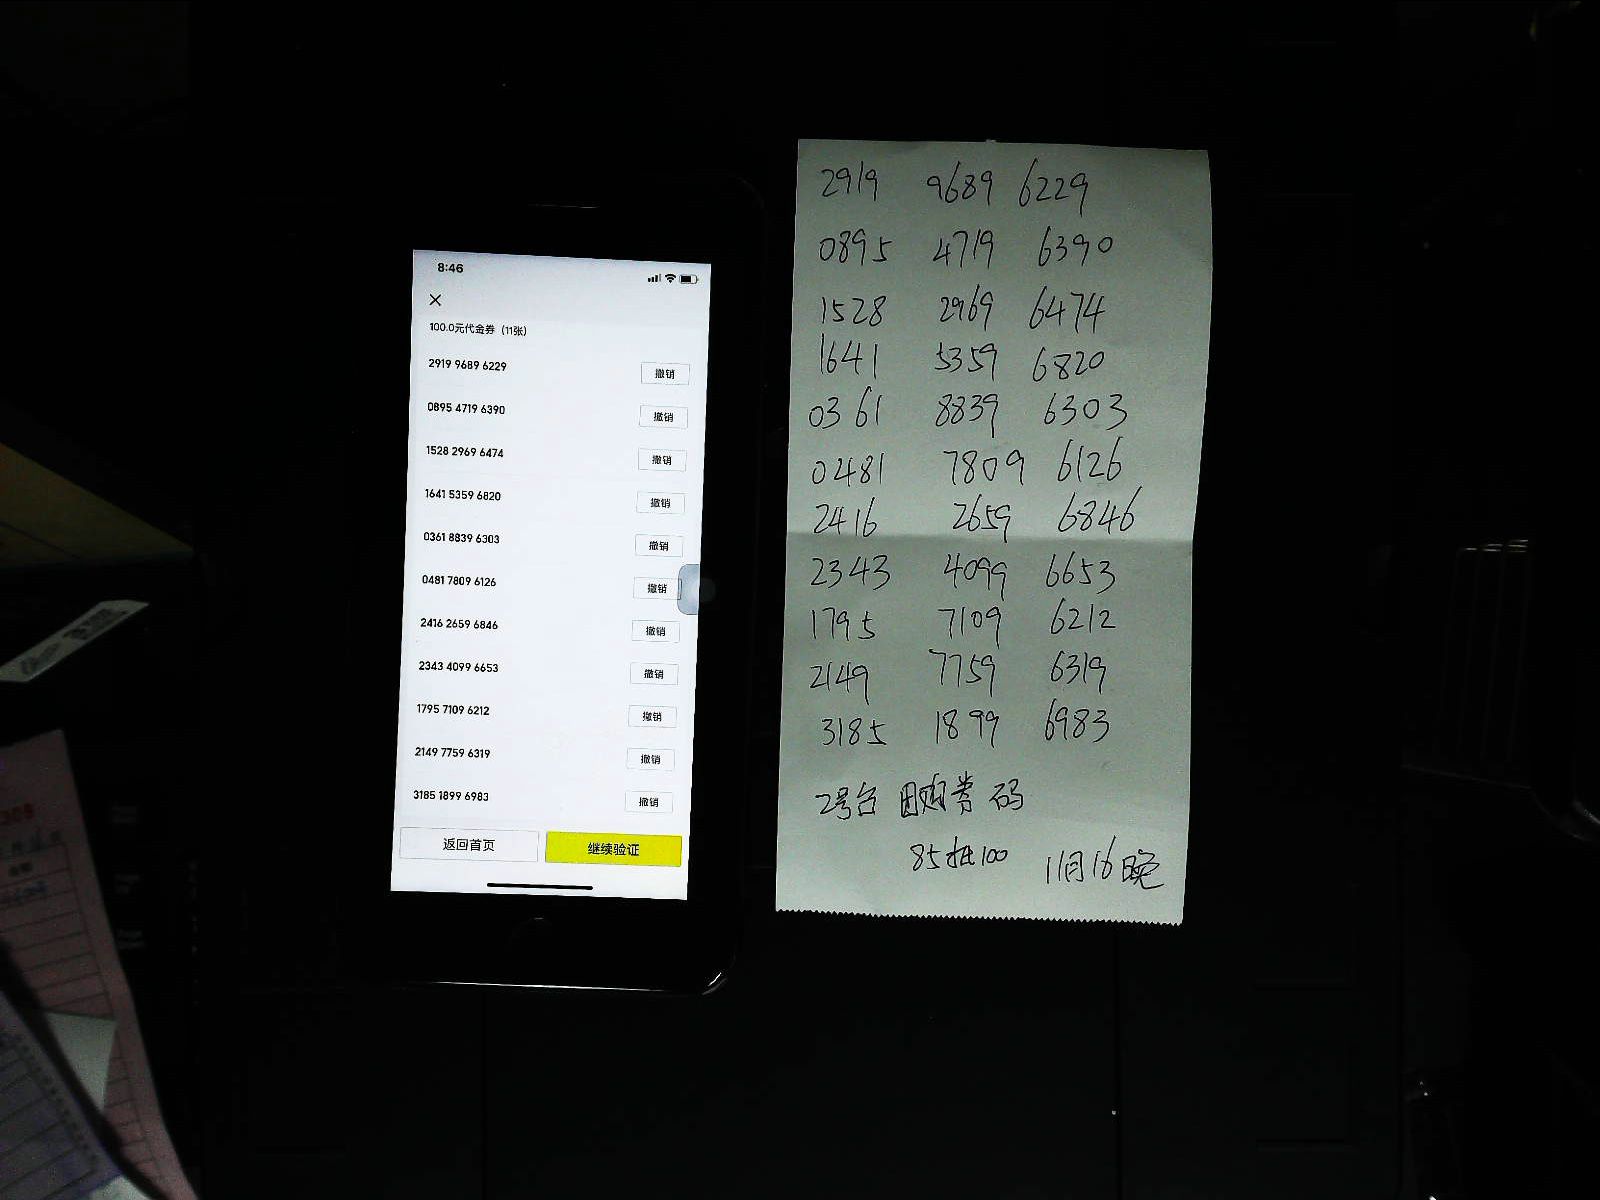 8:46
100.0元代金券（11张）
2919 9689 6229 撤销
0895 4719 6390 撤销
1528 2969 6474 撤销
1641 5359 6820 撤销
0361 8839 6303 撤销
0481 7809 6126 撤销
2416 2659 6846 撤销
2343 4099 6653 撤销
1795 7109 6212 撤销
2149 7759 6319 撤销
3185 1899 6983 撤销
返回首页 继续验证
2919 9689 6229
0895 4719 6390
1528 2969 6474
1641 5359 6820
0361 8839 6303
0481 7809 6126
2416 2659 6846
2343 4099 6653
1795 7109 6212
2149 7759 6319
3185 1899 6983
2号台 团购券码
85抵100 11月16晚